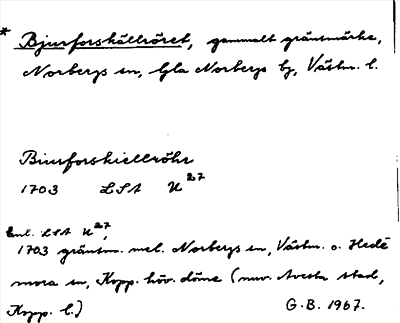 * Bjursforskällröret, gammalt gränsmärke,
Norbergs sn, Gla Norbergs by, Västm. l.
Biursforskiellröhr
1703 LSA U 27
Enl. LSA U 27,
1703 gränsm. mel. Norbergs sn, Västm. o. Hede
mora sn, Kopp. höv. döme (nuv. Avesta stad,
Kopp. l.)
G.B. 1967.